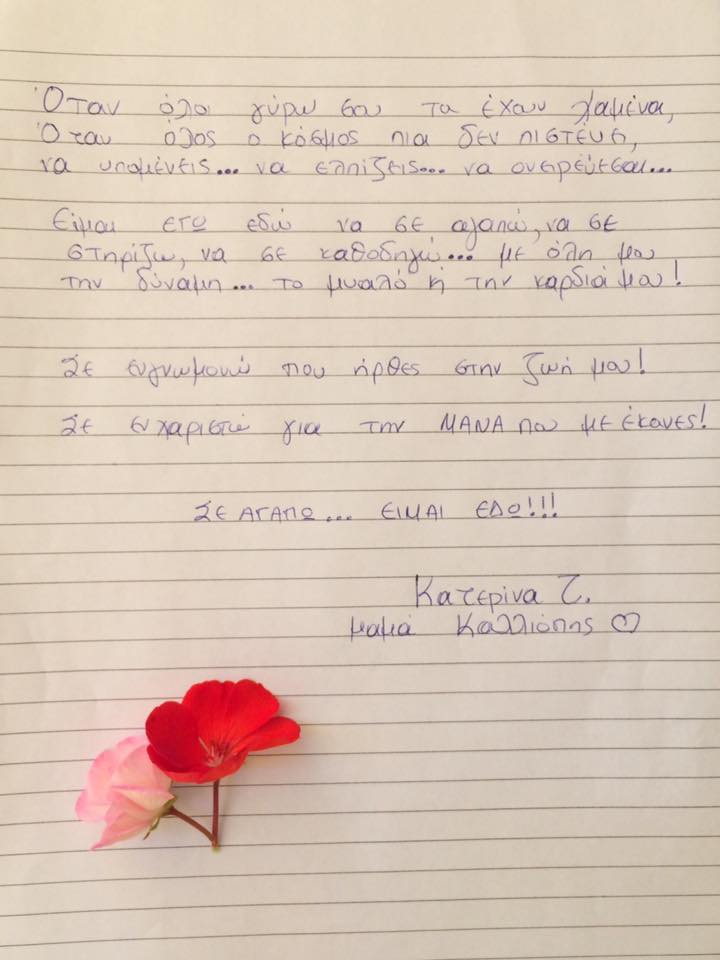 Όταν όλοι γύρω σου τα έχουν χαμένα,
Όταν όλος ο κόσμος πια δεν πιστεύει,
να υπομένεις... να ελπίζεις... να ονειρεύεσαι...
Είμαι εγώ εδώ να σε αγαπώ, να σε
στηρίζω, να σε καθοδηγώ... με όλη μου
την δύναμη... το μυαλό ή την καρδιά μου!
Σε ευγνωμονώ που ήρθες στην ζωή μου!
Σε ευχαριστώ για την ΜΑΝΑ που με έκανες!
ΣΕ ΑΓΑΠΩ... ΕΙΜΑΙ ΕΔΩ!!!
Κατερίνα Ζ.
μαμά Καλλιόπης ♡